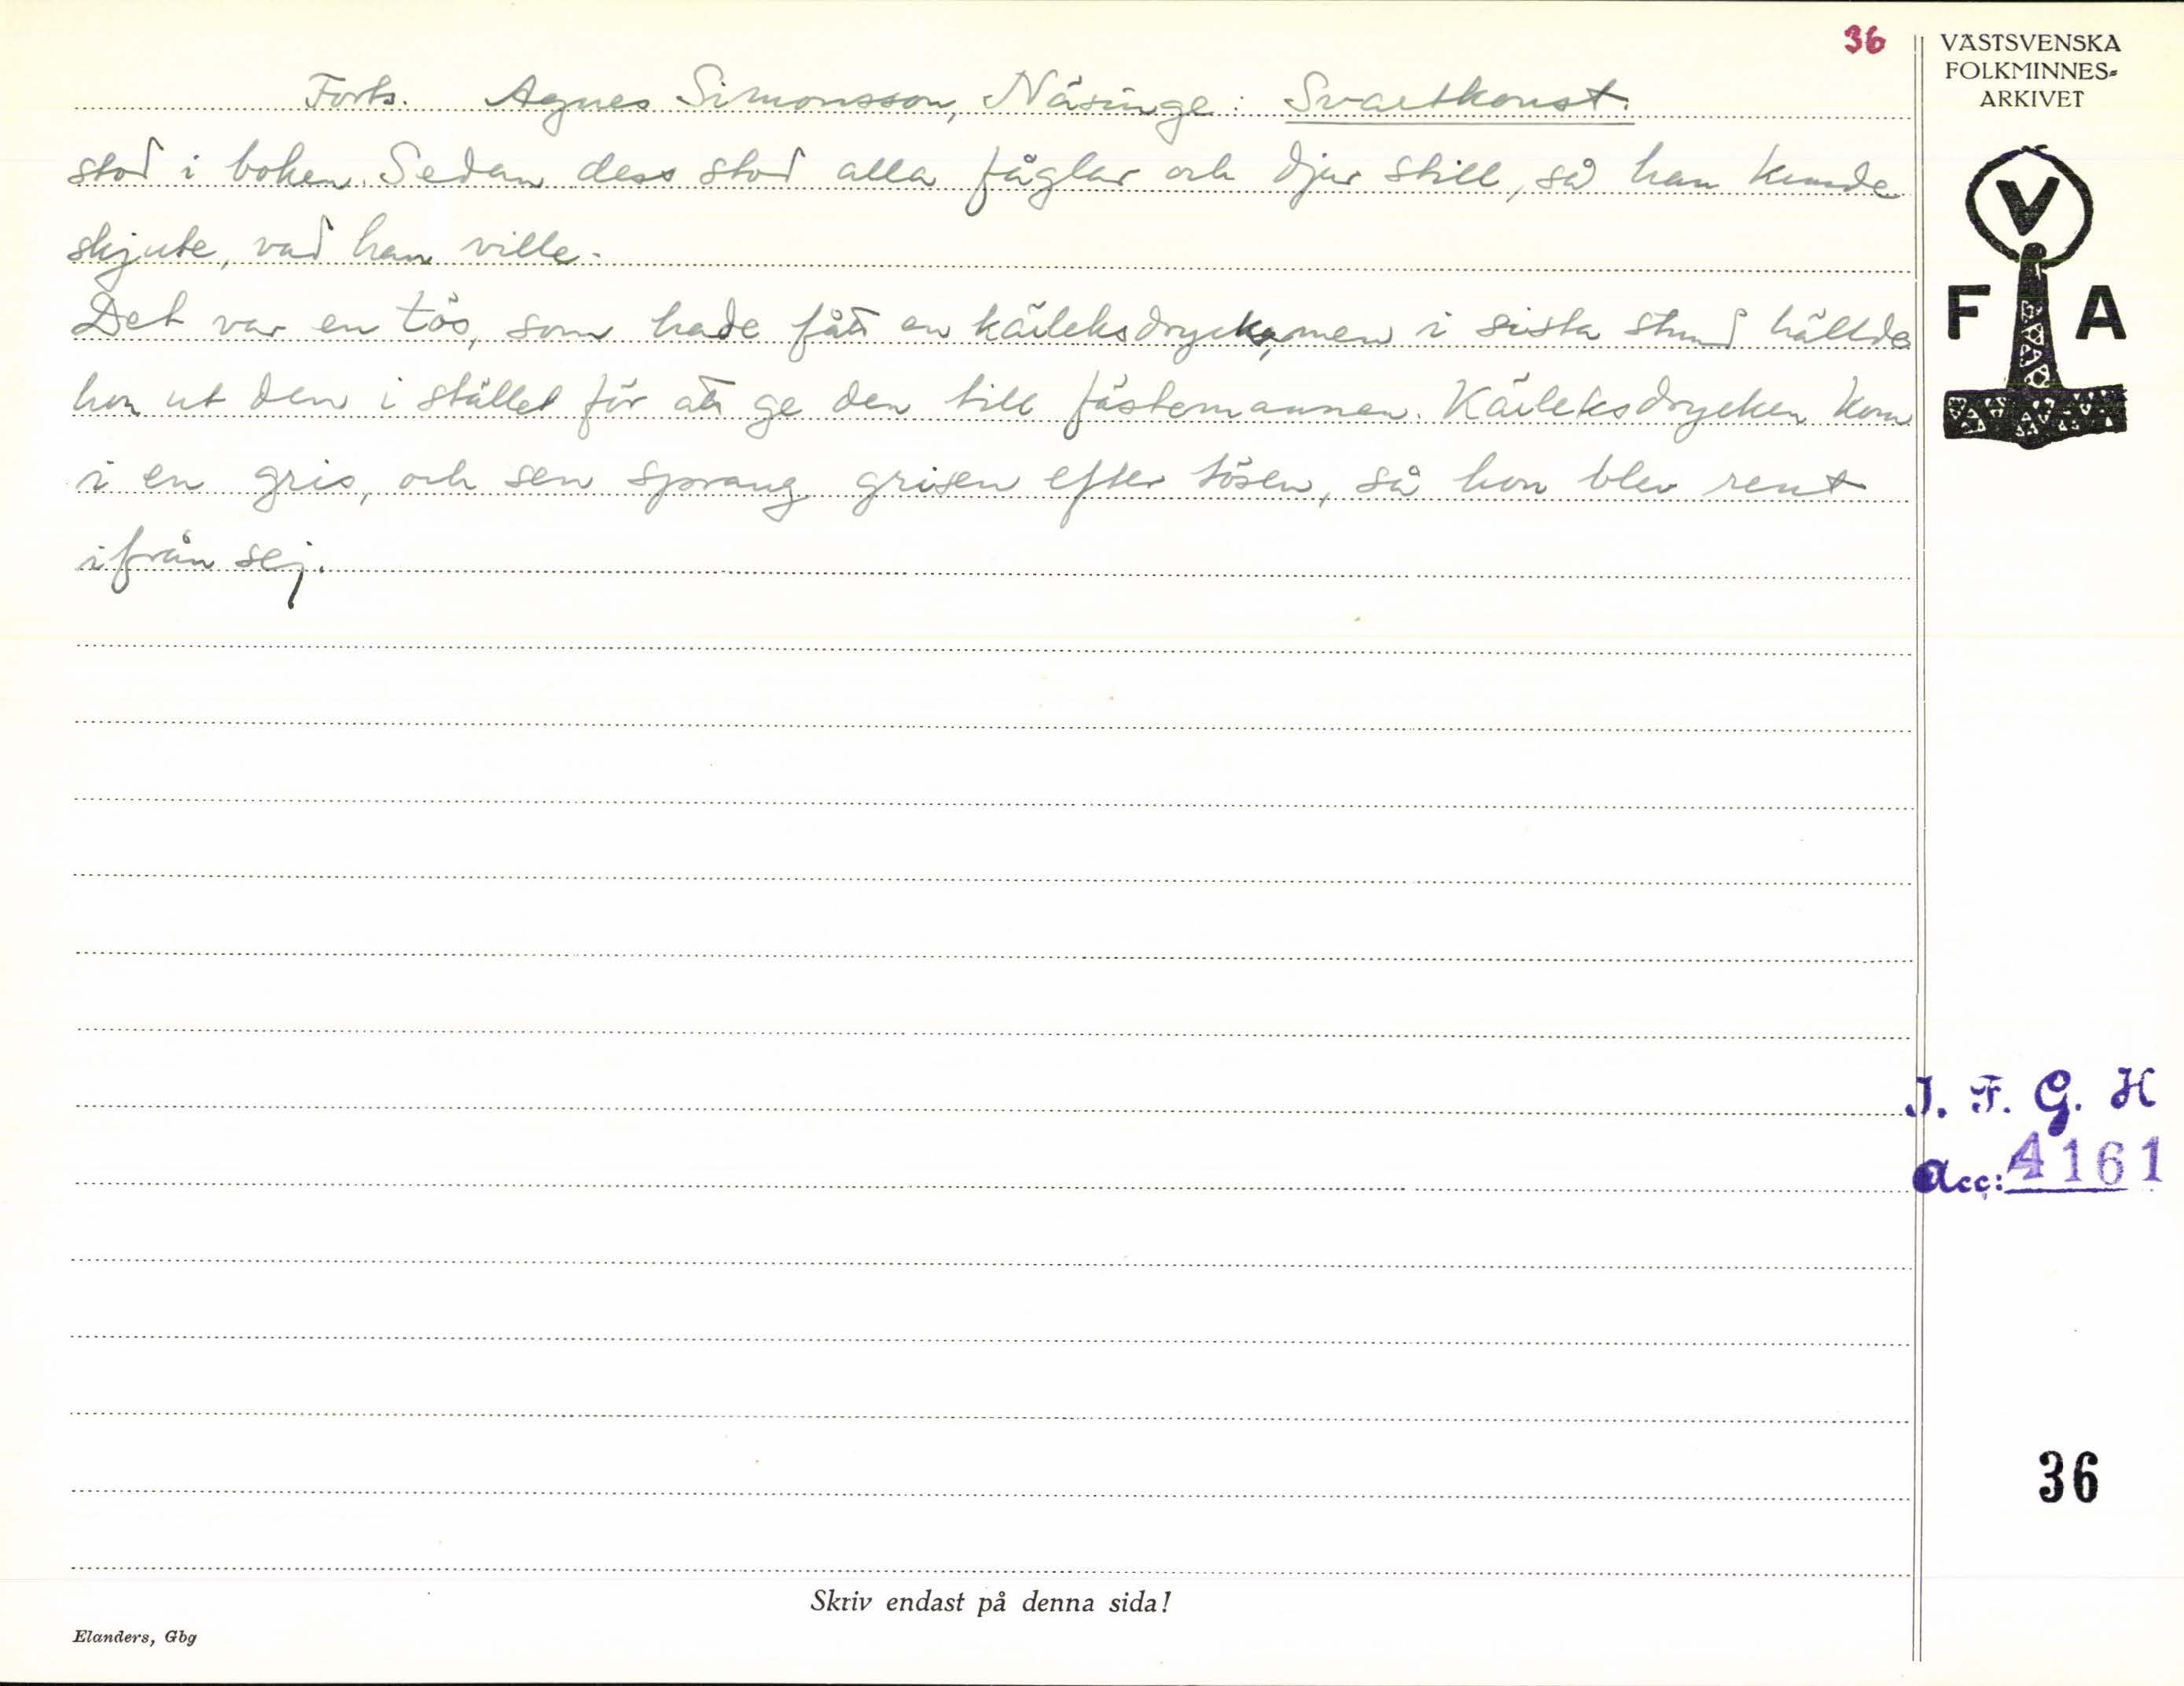 36
Forts. Agnes Simonsson, Näsinge: Svartkonst.
stod i boken. Sedan dess stod alla fåglar och djur still, så han kunde
skjuta, vad han ville.
Det var en tös, som hade fått en kärleksdryck, men i sista stund hällde
hon ut den i stället för att ge den till fästemannen. Kärleksdrycken kom
i en gris, och sen sprang grisen efter tösen, så hon blev rent
ifrån sej.
Skriv endast på denna sida!
Elanders, Gbg
VÄSTSVENSKA
FOLKMINNES-
ARKIVET
V
F A
I. F. G. H
Acc: 4161
36